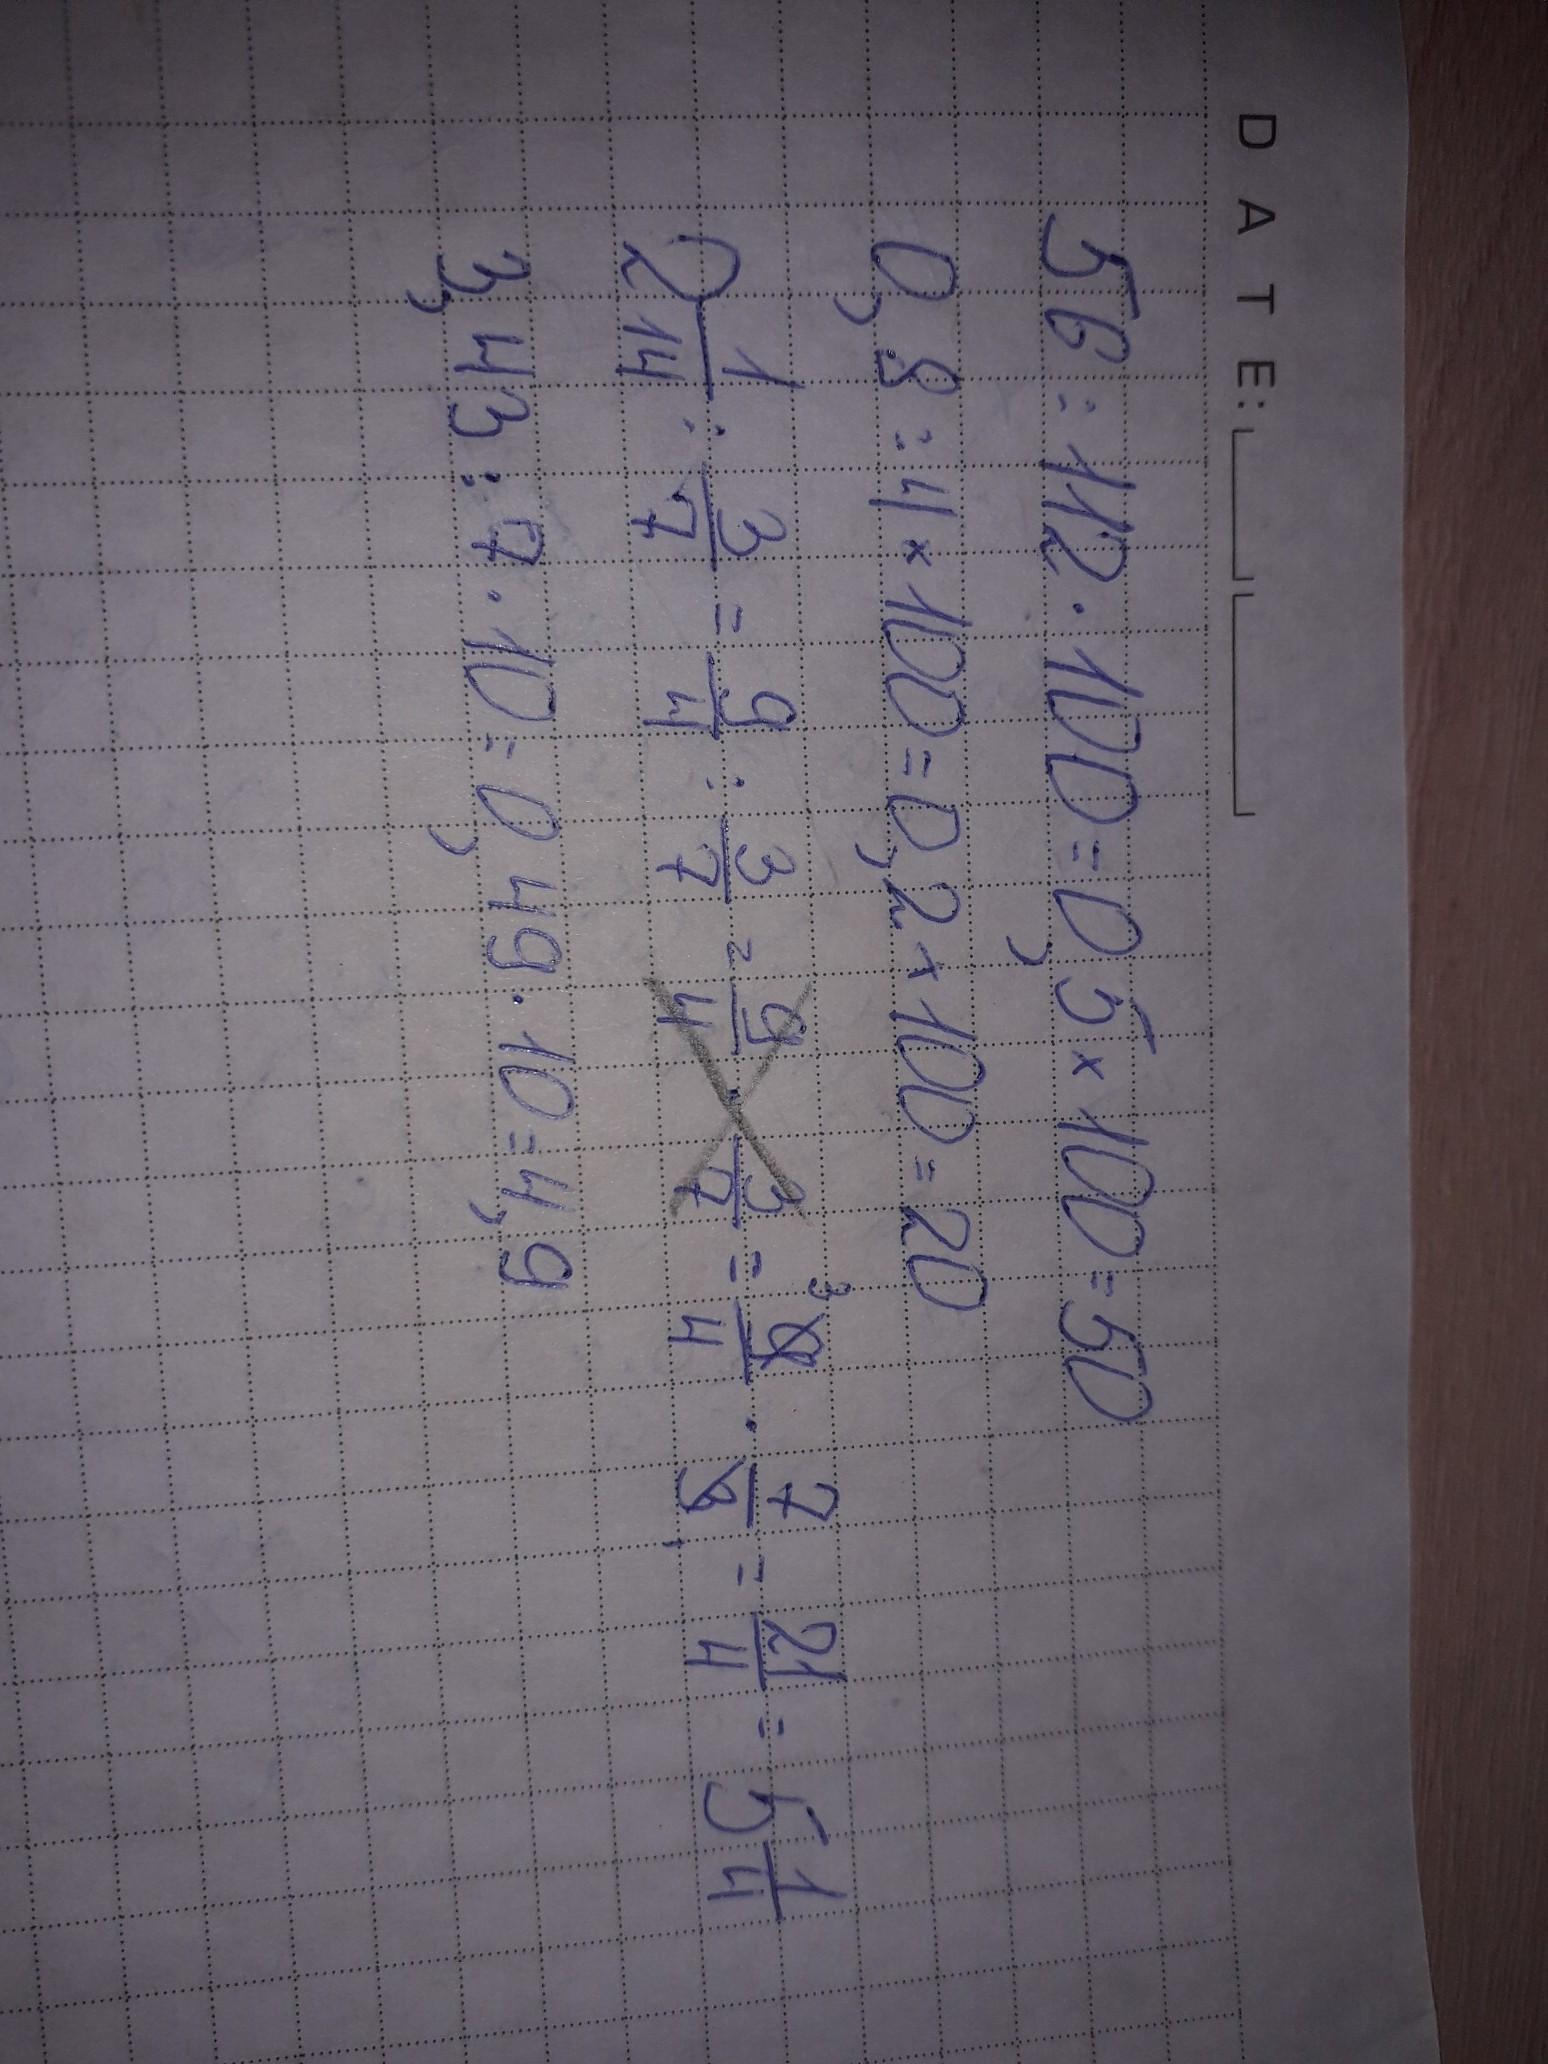 DATE:
56 : 112 · 100 = 0,5 × 100 = 50
0,8 : 4 × 100 = 0,2 × 100 = 20
2 1/14 : 3/7 = 9/4 : 3/7 = 9/4 · 3/7 = 9/4 3 · 7/3 1 = 21/4 = 5 1/4
3,43 : 7 · 10 = 0,49 · 10 = 4,9